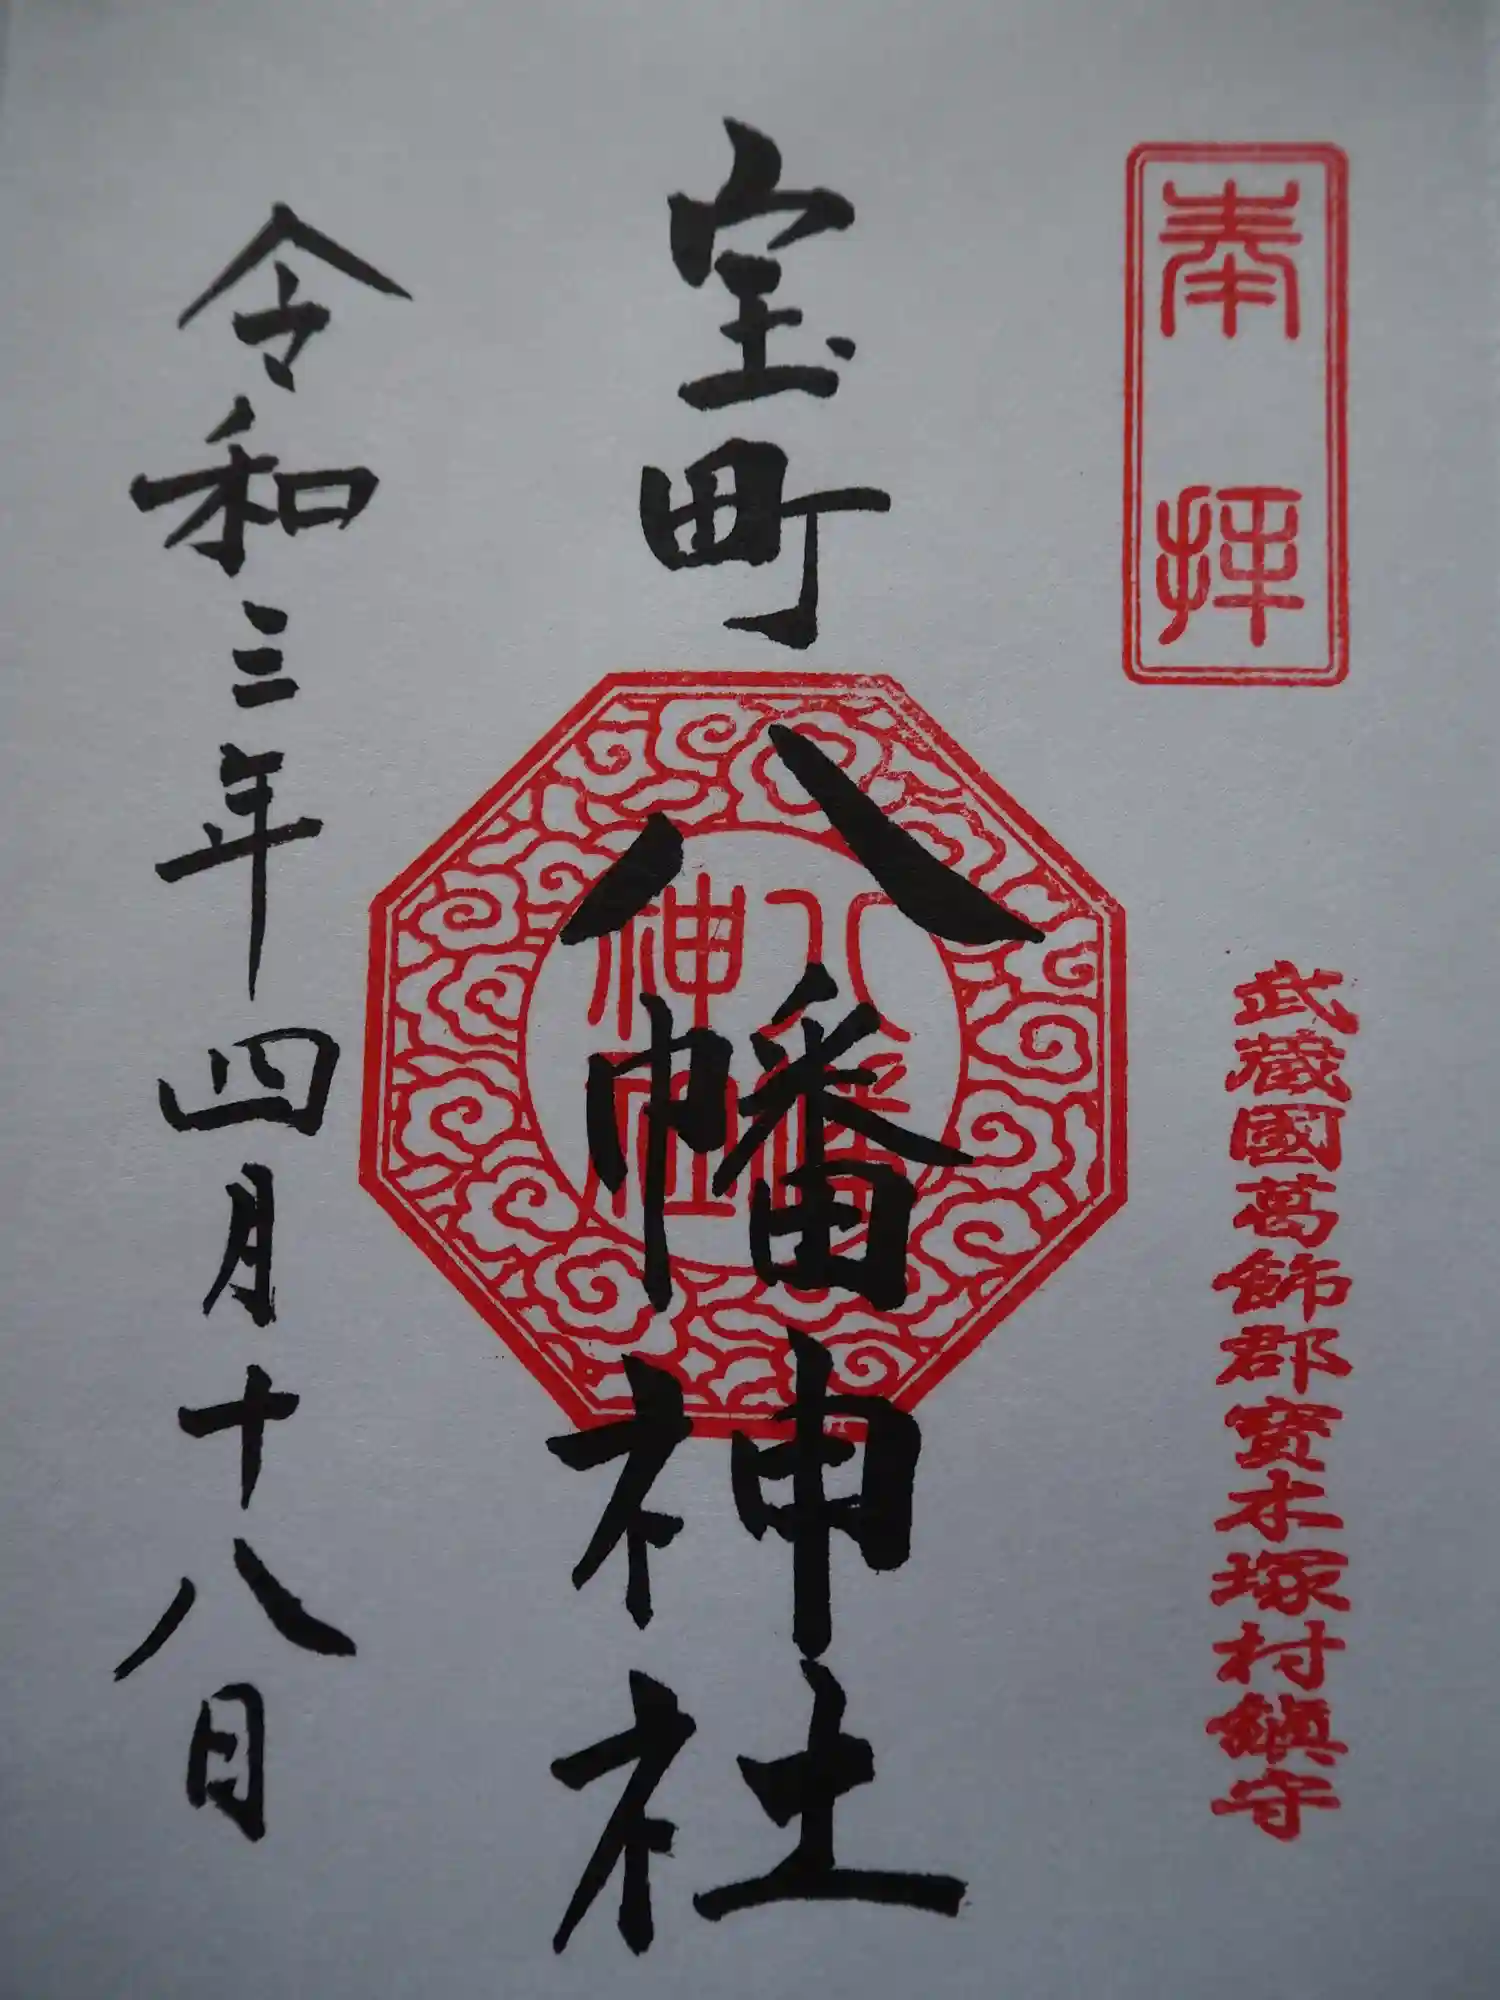 奉拝
武蔵國葛飾郡寳木塚村鎮守
宝町八幡神社
八幡
神社
令和三年四月十八日